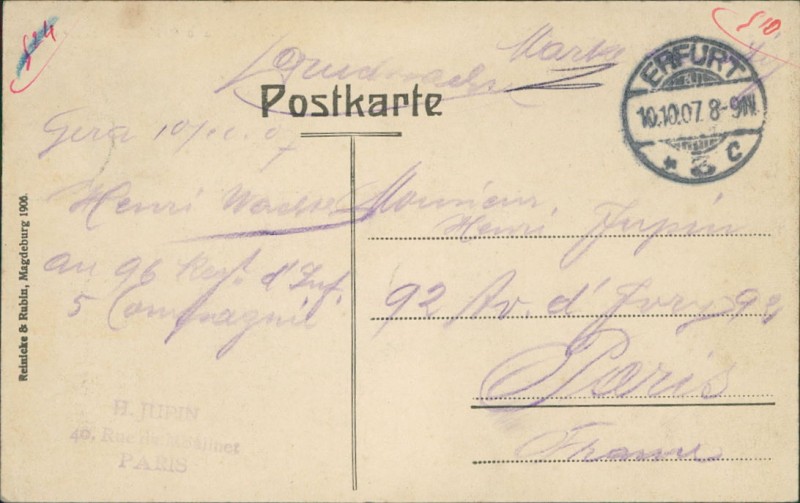 Marke
Postkarte
ERFURT
10.10.07. 8-9N.
* 3 C
Gera 10/X. 07
Henri
Monsieur
Henri Jupin
au 96 Regt. d'Inf.
5 Compagnie
92 Av. d'Ivry 92
Paris
France
H. JUPIN
40, Rue
PARIS
Reinicke & Rubin, Magdeburg 1906.